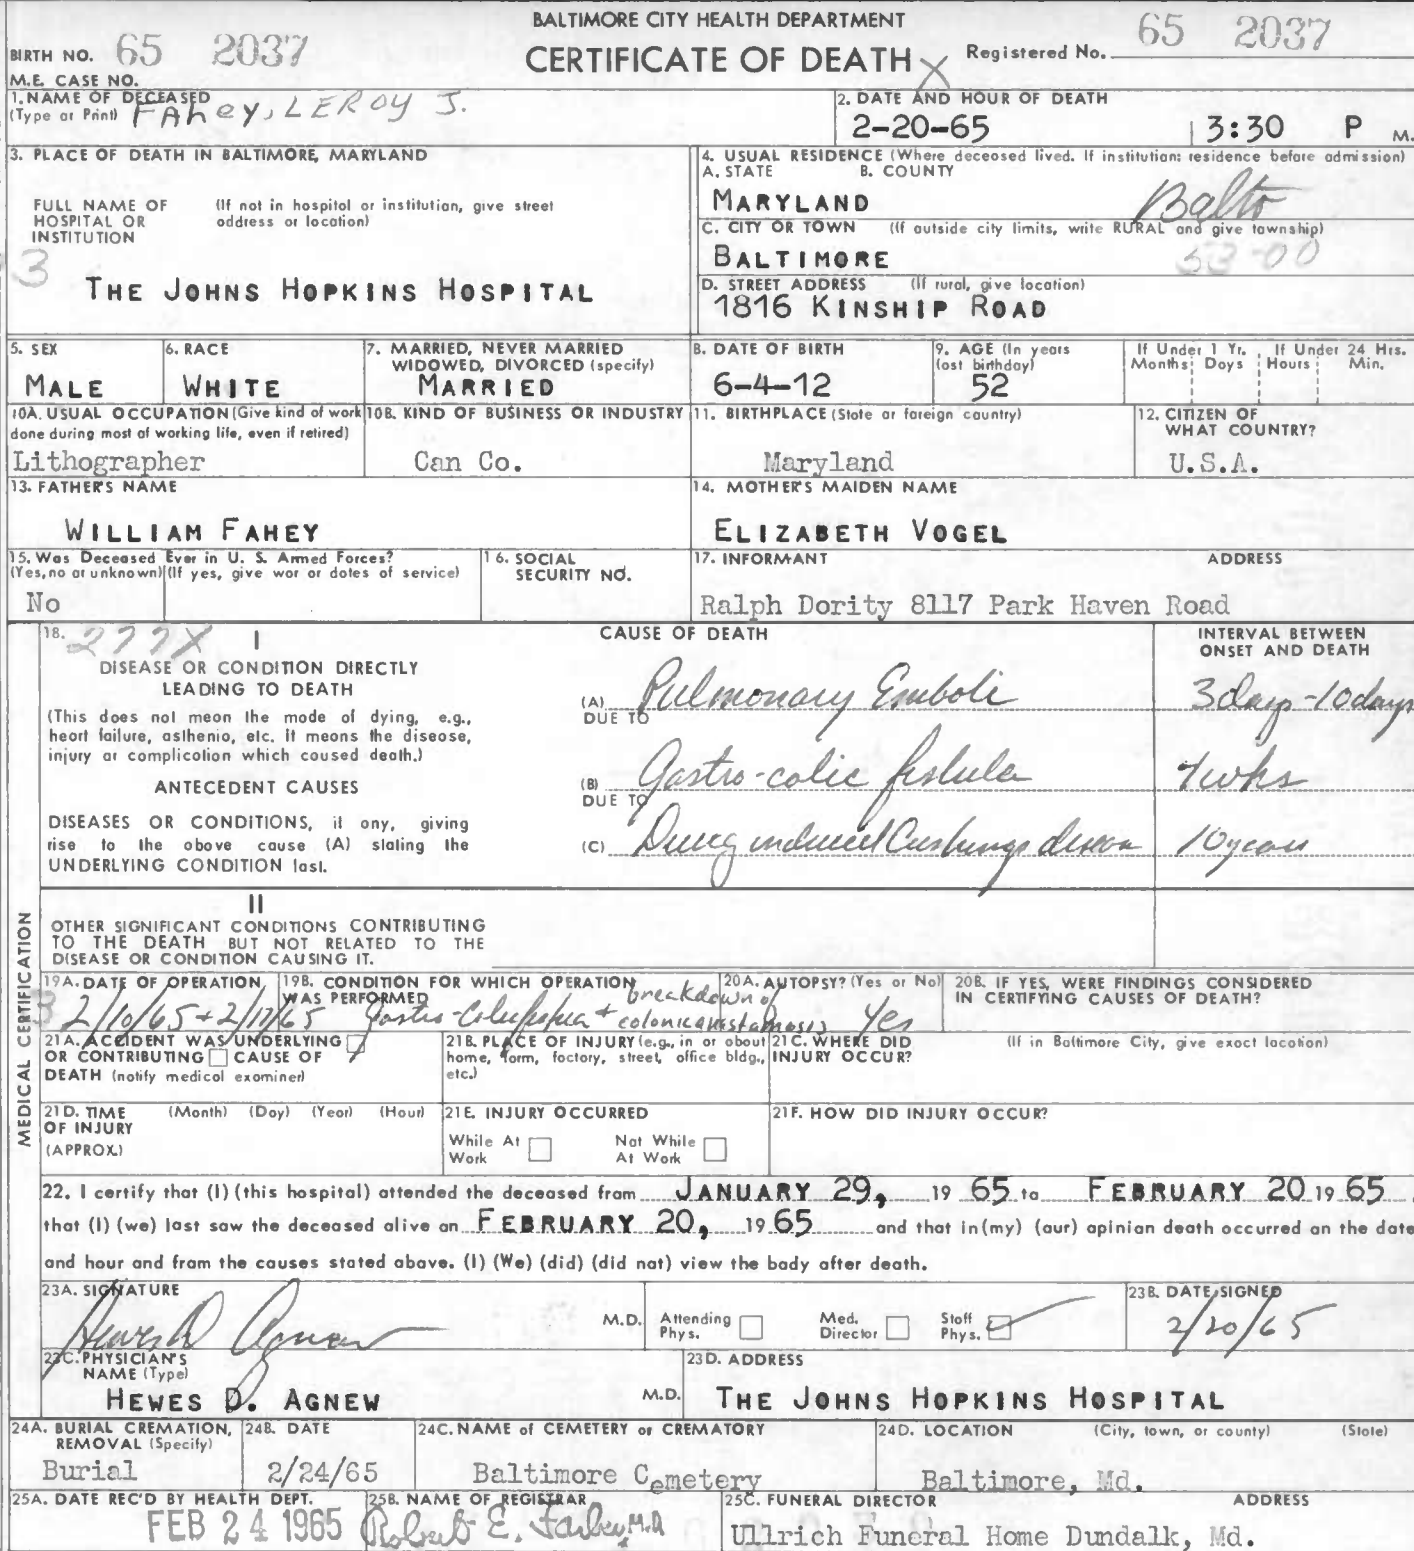 BALTIMORE CITY HEALTH DEPARTMENT
CERTIFICATE OF DEATH X
BIRTH NO. 65 2037
Registered No. 65 2037
M.E. CASE NO.
1. NAME OF DECEASED
(Type or Print) FAhEY, LEROY J.
2. DATE AND HOUR OF DEATH
2-20-65 3:30 P M.
3. PLACE OF DEATH IN BALTIMORE, MARYLAND
FULL NAME OF HOSPITAL OR INSTITUTION
(If not in hospital or institution, give street address or location)
3
THE JOHNS HOPKINS HOSPITAL
4. USUAL RESIDENCE (Where deceased lived. If institution: residence before admission)
A. STATE B. COUNTY
MARYLAND Balto
C. CITY OR TOWN (If outside city limits, write RURAL and give township)
BALTIMORE 53-00
D. STREET ADDRESS (If rural, give location)
1816 KINSHIP ROAD
5. SEX
MALE
6. RACE
WHITE
7. MARRIED, NEVER MARRIED
WIDOWED, DIVORCED (specify)
MARRIED
8. DATE OF BIRTH
6-4-12
9. AGE (In years
last birthday)
52
If Under 1 Yr. If Under 24 Hrs.
Months Days Hours Min.
10A. USUAL OCCUPATION (Give kind of work
done during most of working life, even if retired)
Lithographer
10B. KIND OF BUSINESS OR INDUSTRY
Can Co.
11. BIRTHPLACE (State or foreign country)
Maryland
12. CITIZEN OF
WHAT COUNTRY?
U.S.A.
13. FATHER'S NAME
WILLIAM FAHEY
14. MOTHER'S MAIDEN NAME
ELIZABETH VOGEL
15. Was Deceased Ever in U. S. Armed Forces?
(Yes, no or unknown) (If yes, give war or dates of service)
No
16. SOCIAL
SECURITY NO.
17. INFORMANT ADDRESS
Ralph Dority 8117 Park Haven Road
18. 277X I
CAUSE OF DEATH
INTERVAL BETWEEN
ONSET AND DEATH
DISEASE OR CONDITION DIRECTLY
LEADING TO DEATH
(This does not mean the mode of dying, e.g.,
heart failure, asthenia, etc. It means the disease,
injury or complication which caused death.)
(A) Pulmonary Emboli 3 days - 10 days
DUE TO
ANTECEDENT CAUSES
(B) Gastro-colic fistula wks
DUE TO
DISEASES OR CONDITIONS, if any, giving
rise to the above cause (A) stating the
UNDERLYING CONDITION last.
(C) Drug induced Cushings disease 10 years
II
OTHER SIGNIFICANT CONDITIONS CONTRIBUTING
TO THE DEATH BUT NOT RELATED TO THE
DISEASE OR CONDITION CAUSING IT.
MEDICAL CERTIFICATION
19A. DATE OF OPERATION
2/10/65 + 2/17/65
19B. CONDITION FOR WHICH OPERATION
WAS PERFORMED
Gastro-Colic fistula + breakdown of
colonic anastamosis
20A. AUTOPSY? (Yes or No)
Yes
20B. IF YES, WERE FINDINGS CONSIDERED
IN CERTIFYING CAUSES OF DEATH?
21A. ACCIDENT WAS UNDERLYING
OR CONTRIBUTING CAUSE OF
DEATH (notify medical examiner)
21B. PLACE OF INJURY (e.g., in or about
home, farm, factory, street, office bldg.,
etc.)
21C. WHERE DID
INJURY OCCUR?
(If in Baltimore City, give exact location)
21D. TIME (Month) (Day) (Year) (Hour)
OF INJURY
(APPROX.)
21E. INJURY OCCURRED
While At Work Not While At Work
21F. HOW DID INJURY OCCUR?
22. I certify that (I) (this hospital) attended the deceased from JANUARY 29, 19 65 to FEBRUARY 20 19 65,
that (I) (we) last saw the deceased alive on FEBRUARY 20, 19 65 and that in (my) (our) opinion death occurred on the date
and hour and from the causes stated above. (I) (We) (did) (did not) view the body after death.
23A. SIGNATURE
Hewes D Agnew M.D.
Attending Phys. Med. Director Staff Phys.
23B. DATE SIGNED
2/20/65
23C. PHYSICIAN'S
NAME (Type)
HEWES D. AGNEW M.D.
23D. ADDRESS
THE JOHNS HOPKINS HOSPITAL
24A. BURIAL CREMATION,
REMOVAL (Specify)
Burial
24B. DATE
2/24/65
24C. NAME of CEMETERY or CREMATORY
Baltimore Cemetery
24D. LOCATION (City, town, or county) (State)
Baltimore, Md.
25A. DATE REC'D BY HEALTH DEPT.
FEB 24 1965
25B. NAME OF REGISTRAR
Robert E. Farber, M.D
25C. FUNERAL DIRECTOR ADDRESS
Ullrich Funeral Home Dundalk, Md.